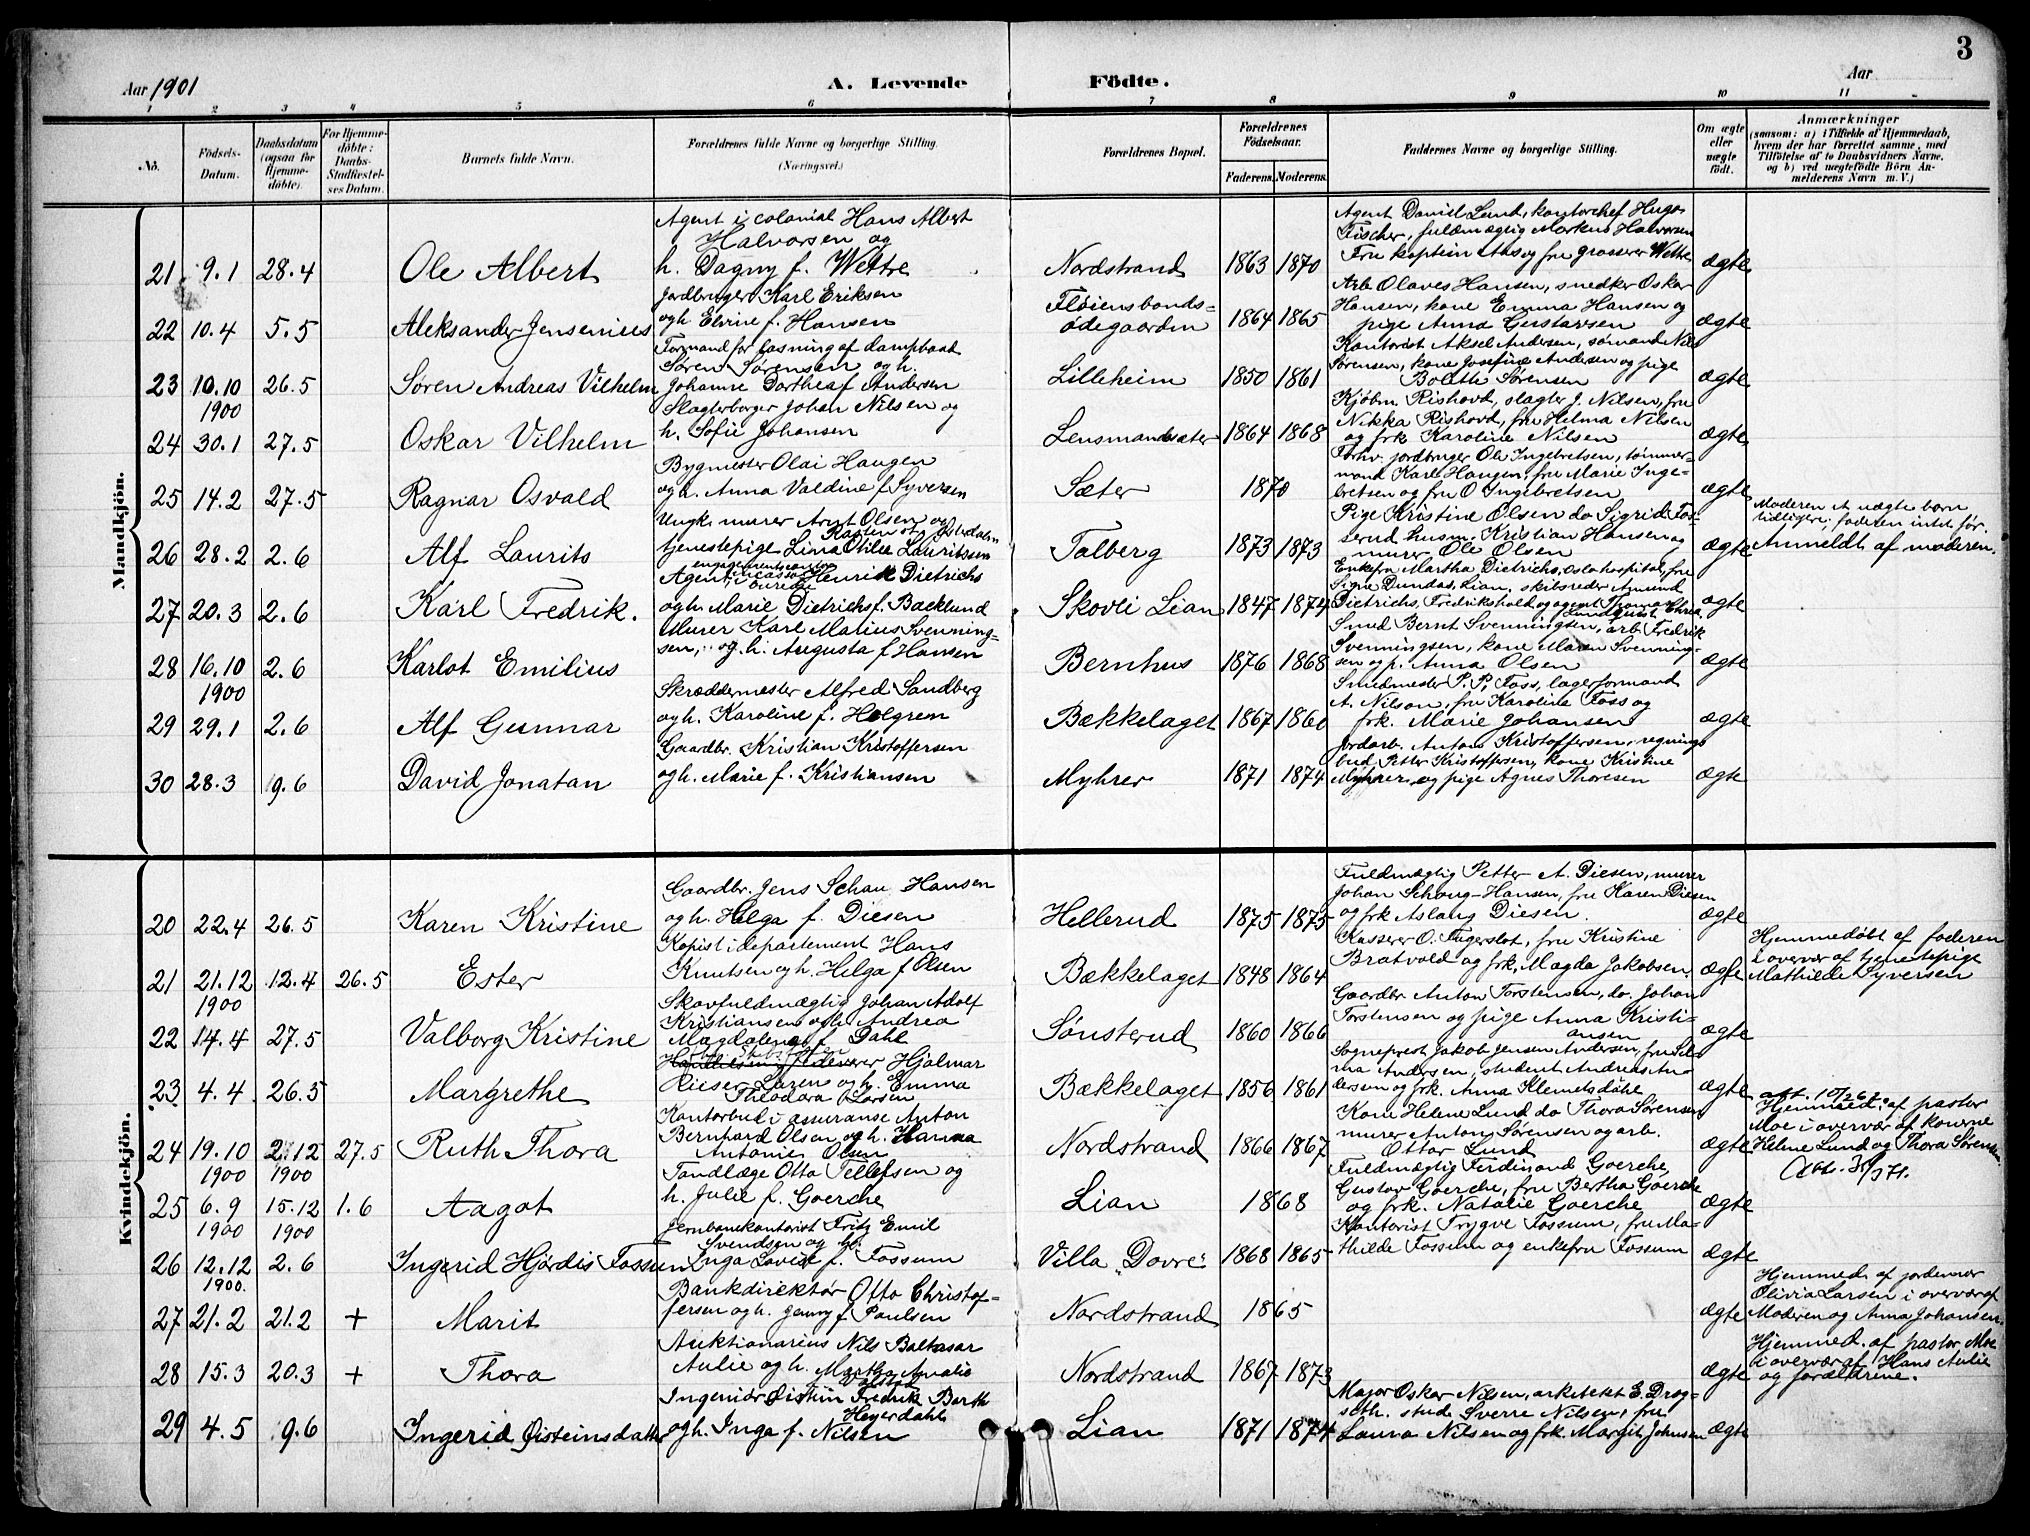 3
Aar 1901
A. Levende
Födte.
Aar
1 2 3 4 5 6 7 8 9 10 11
No.
Födsels-Datum.
Daabsdatum (ogsaa for Hjemme-döbte).
For Hjemme-döbte: Daabs-Stadfæstelses Datum.
Barnets fulde Navn.
Forældrenes fulde Navne og borgerlige Stilling.
(Næringsvei.)
Forældrenes Bopæl.
Forældrenes Födselsaar.
Faderens. Moderens.
Faddernes Navne og borgerlige Stilling.
Om ægte eller uægte födt.
Anmærkninger
(saasom: a) i Tilfælde af Hjemmedaab, hvem der har forrettet samme, med Tilföielse af to Daabsvidners Navne, og b) ved uægtefödte Börn Anmelderens Navn m. V.)
Mandkjön.
21 9.1 28.4 Ole Albert
Agent i colonial Hans Albert
Halvorsen og
h. Dagny f. Wettre
Nordstrand 1863 1870
Agent Daniel Lund, kontorchef Hugo
Fischer, fuldmægtig Markus Halvorsen
Fru kaptein Aas og fru grosserer Wettre
ægte
22 10.4 5.5 Aleksander Jensenius
Jordbruger Karl Eriksen
og h. Elvine f. Hansen
Fløiensbonds-
ødegaarden 1864 1865
Arb. Olaves Hansen, snedker Oskar
Hansen, kone Emma Hansen og
pige Anna Gustavsen
ægte
23 10.10 1900 26.5 Søren Andreas Vilhelm
Formand for lasning af dampbaad
Søren Sørensen og h.
Johanne Dorthea f Andersen
Lilleheim 1850 1861
Kontorist Aksel Andersen, sømand Nils
Sørensen, kone Josefine Andersen og pige
Bolette Sørensen
ægte
24 30.1 27.5 Oskar Vilhelm
Slagterborger Johan Nilsen og
h. Sofie Johansen
Lensmandsæter 1864 1868
Kjøbm. Rishovd, slagter J. Nilsen, fru
Nikka Rishovd, fru Helma Nilsen
og frk Karoline Nilsen
ægte
25 14.2 27.5 Ragnar Osvald
Bygmester Olai Haugen
og h. Anna Valdine f Syversen
Sæter 1870
Forhv. jordbruger Ole Ingebretsen, tømmer-
mand Karl Haugen, fru Marie Inge-
bretsen og fru O Ingebretsen
ægte
26 28.2 2.6 Alf Laurits
Ungk. murer Arnt Olsen og
tjenestepige Lina Otilie Lauritsen
Talberg 1873 1873
Pige Kristine Olsen do Sigrid Fos-
serud husm. Kristian Hansen og
murer Ole Olsen
ægte
Moderen et uægte barn
tidligere; faderen intet før.
Anmeldt af moderen.
27 20.3 2.6 Karl Fredrik.
Agent, Henrik Dietrichs
og h. Marie Dietrichs f. Backlund
Skovli Lian 1847 1874
Enkefru Martha Dietrichs, Oslo hospital, fru
Signe Dundas, Lian, skibsreder Amund
Dietrichs, Fredrikshald, og agent Thomas
Lundquist, Chria.
ægte
28 16.10 1900 2.6 Karlot Emilius
Murer Karl Marius Svenning-
sen, og h. Augusta f Hansen
Bernhus 1876 1868
Smed Bernt Svenningsen, arb Fredrik
Svenningsen, kone Maren Svenning-
sen og p. Anna Olsen
ægte
29 29.1 2.6 Alf Gunnar
Skræddermester Alfred Sandberg
og h. Karoline f. Holgrem
Bækkelaget 1867 1860
Smedmester P. P. Foss, lagerformand
A. Nilson, fru Karoline Foss og
frk. Marie Johansen
ægte
30 28.3 9.6 David Jonatan
Gaardbr. Kristian Kristoffersen
og h. Marie f. Kristiansen
Myhrer 1871 1874
Jordarb. Antons Kristoffersen, regnings-
bud Petter Kristoffersen, kone Kristine
Myhrer og pige Agnes Thoresen
ægte
Kvindekjön.
20 22.4 26.5 Karen Kristine
Gaardbr. Jens Schau Hansen
og h. Helga f. Diesen
Hellerud 1875 1875
Fuldmægtig Petter A. Diesen, murer
Johan Schoug-Hansen, fru Karen Diesen
og frk Aslaug Diesen.
ægte
21 21.12 1900 12.4 26.5 Ester
Kopist i departement Hans
Knutsen og h. Helga f Olsen
Bækkelaget 1848 1864
Kasserer O. Fugerslot, fru Kristine
Bratvold og frk. Magda Jakobsen.
ægte
Hjemmedøbt af faderen
i overvær af tjenestepige
Mathilde Syversen
22 14.4 27.5 Valborg Kristine
Skovfuldmægtig Johan Adolf
Kristiansen og h. Andrea
Magdalena f. Dahl
Sønsterud 1860 1866
Gaardbr Anton Torstensen, do. Johan
Torstensen og pige Anna Kristi-
ansen
ægte
23 4.4 26.5 Margrethe
Hjalmar
Rieser Larsen og h. Emma
Theodora Larsen
Bækkelaget 1856 1861
Sogneprest Jakob Jensen Andersen, fru Sel-
ma Andersen, student Andreas An-
dersen og frk. Anna Klemetsdahl
ægte
att. 10/2 67.
24 19.10 1900 2.12 1900 27.5 Ruth Thora
Kontorbud i assuranse Anton
Bernhard Olsen og h. Hanna
Antonie Olsen
Nordstrand 1866 1867
Kone Helene Lund do Thora Sørensen
murer Anton Sørensen og arb.
Ottar Lund
ægte
Hjemmed. af pastor
Moe i overvær af konerne
Helene Lund og Thora Sørensen.
25 6.9 1900 15.12 1900 1.6 Aagot
Tandlæge Otto Tellefsen og
h. Julie f. Goerche
Lian 1868
Fuldmægtig Ferdinand Goerche,
Gustav Goerche, fru Bertha Goerche
og frk. Natalie Goerche
ægte
26 12.12 1900. 2.6 Ingerid Hjørdis Fossum
Jernbanekontorist Fritz Emil
Svendsen og h.
Inga Lovise f. Fossum
Villa „Dovre“ 1868 1865
Kontorist Trygve Fossum, fru Ma-
thilde Fossum og enkefru Fossum
ægte
27 21.2 21.2 + Marit
Bankdirektør Otto Christof-
fersen og h. Jenny f Paulsen
Nordstrand 1865
ægte
Hjemmed. af jordemor
Olivia Larsen i overvær af
Moderen og Anna Johansen.
28 15.3 20.3 + Thora
Auktionarius Nils Baltasar
Aulie og h. Martha Amalie
Nordstrand 1867 1873
ægte
Hjemmed. af pastor Moe
i overvær af Hans Aulie
og forældrene.
29 4.5 9.6 Ingerid Øisteinsdatter
Ingeniør Øistein Fredrik Barth
Heyerdahl
og h. Inga f. Nilsen
Lian 1871 1874
Major Oskar Nilsen, arkitekt E. Drog-
seth. stud Sverre Nilsen, fru
Laura Nilsen og frk. Margit Johnsen
ægte